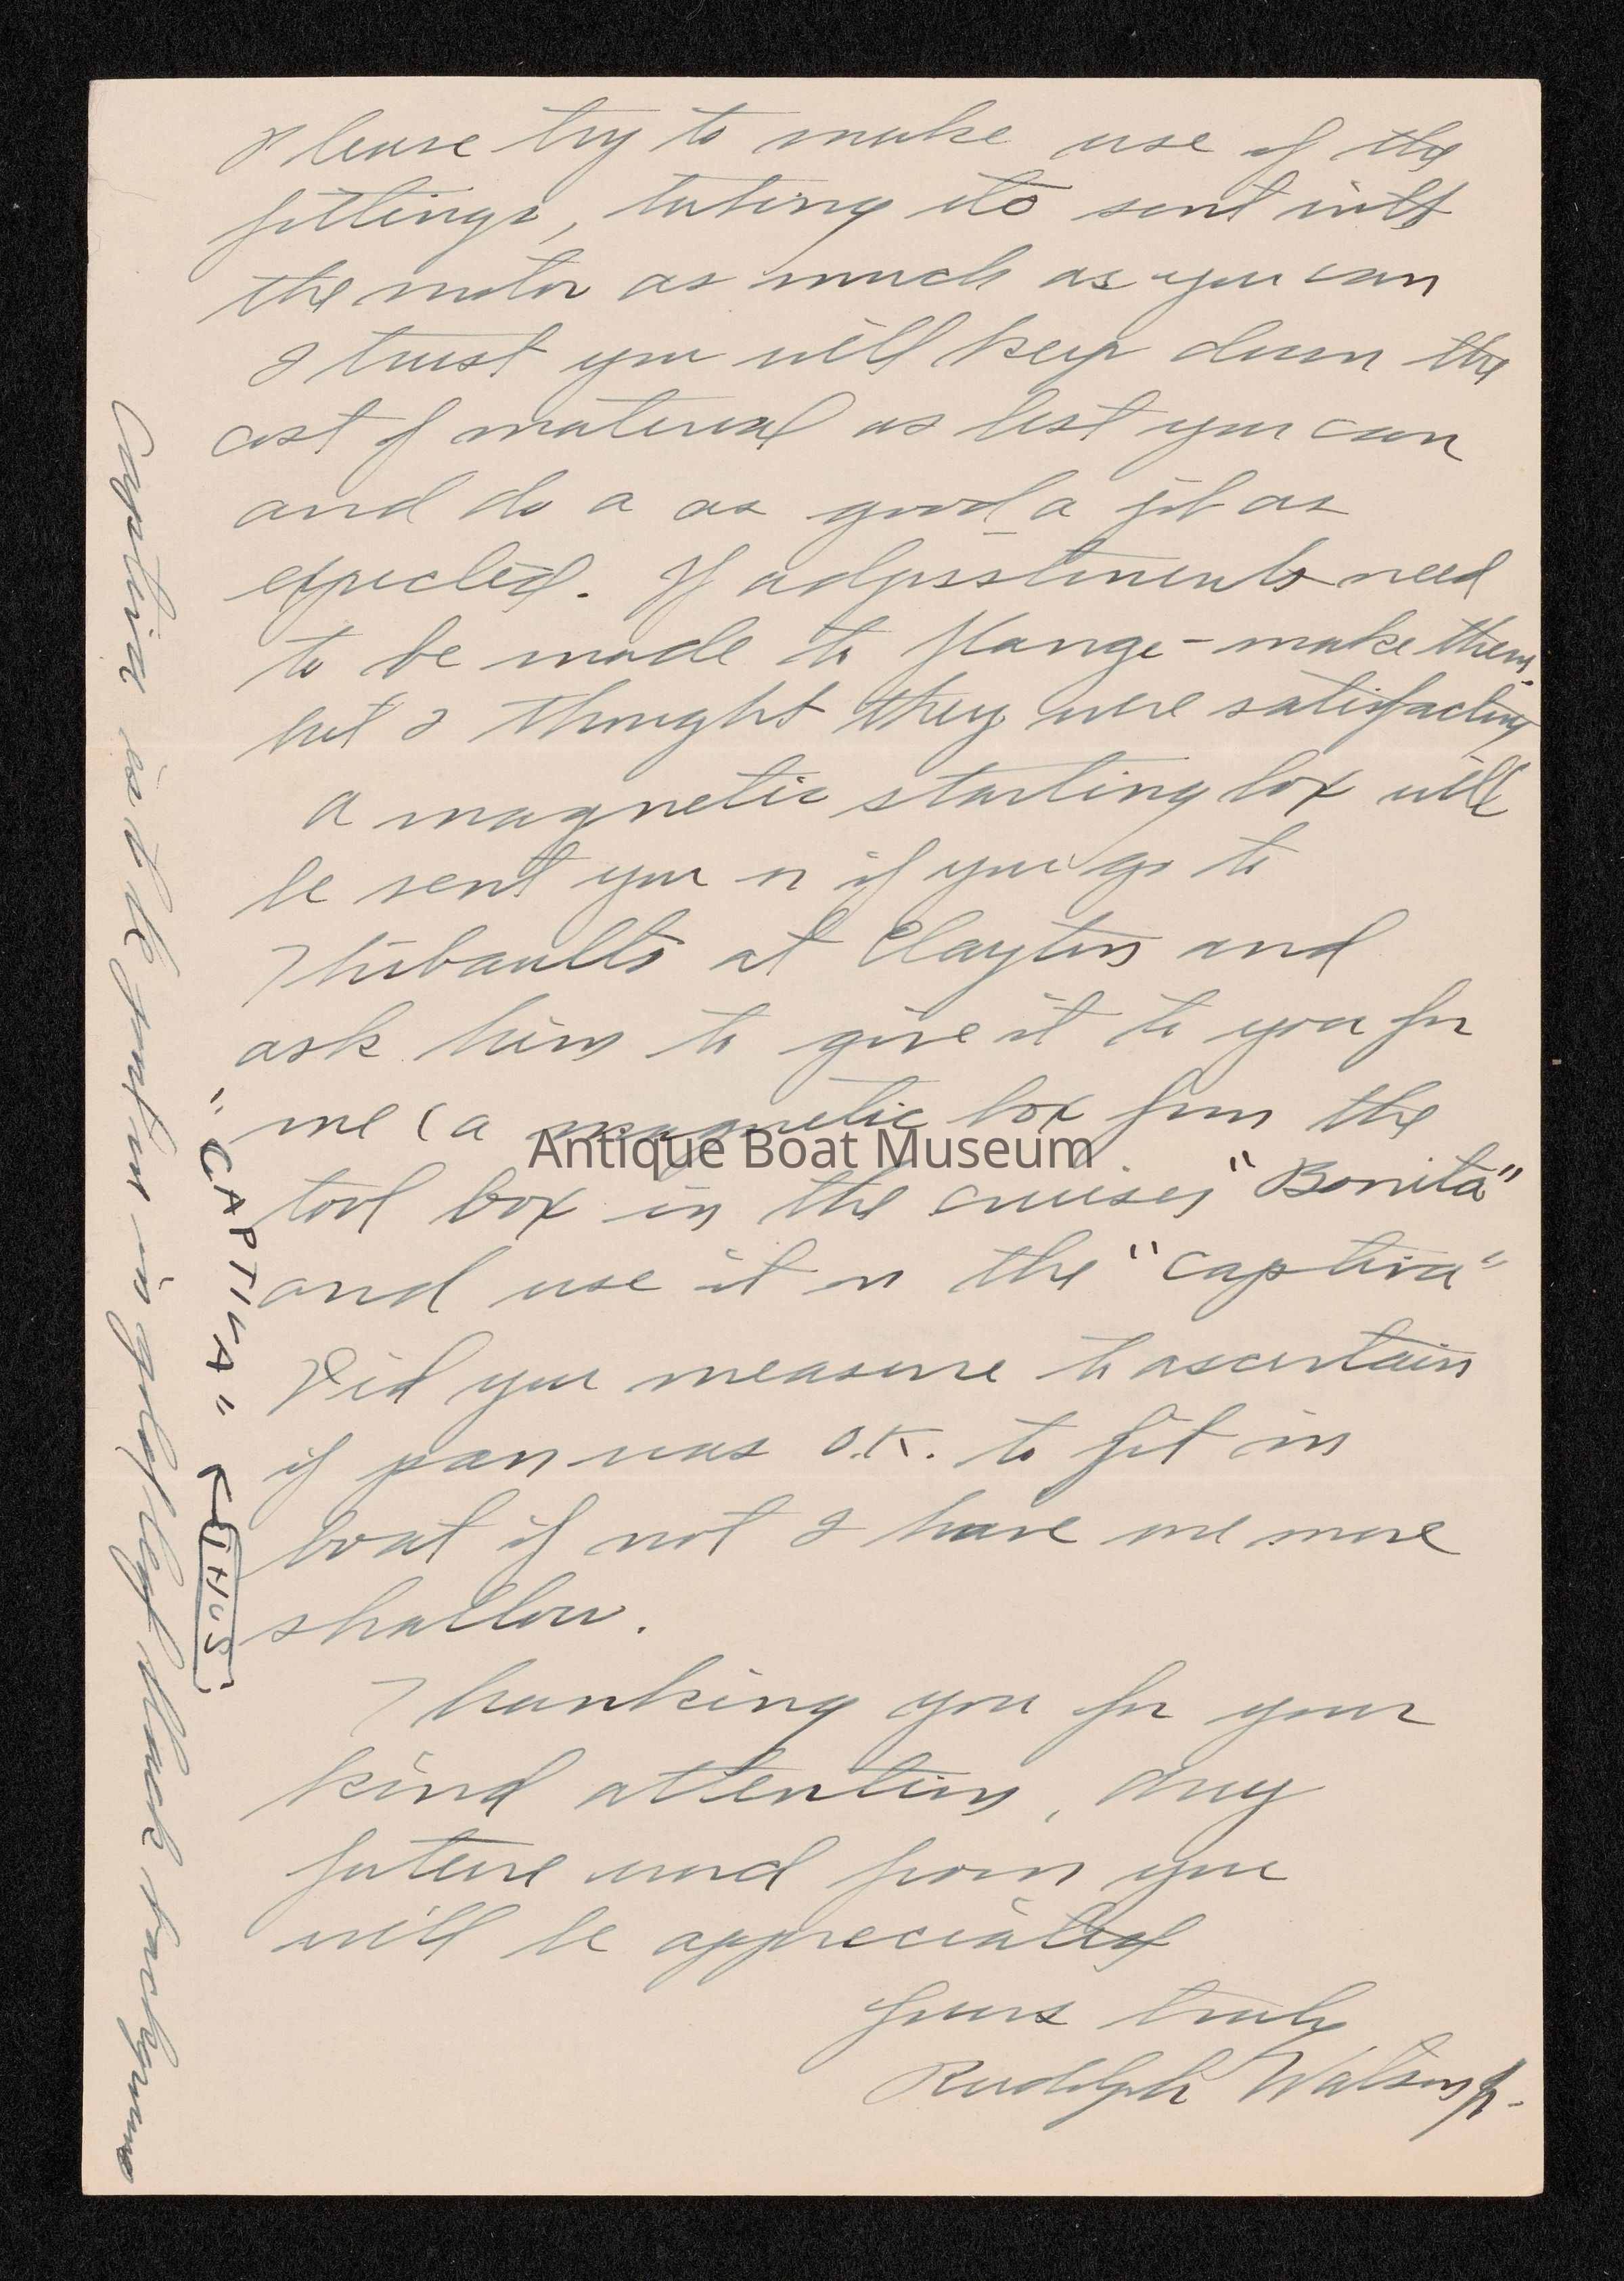 Please try to make use of the
fittings, tubing etc sent with
the motor as much as you can
I trust you will keep down the
cost of material as best you can
and do a as good a job as
expected. If adjusstments need
to be made to flange - make them.
but I thought they were satisfactory
A magnetic starting box will
be sent you or if you go to
Thibaults at Clayton and
ask him to give it to you for
me (a magnetic box from the
tool box in the cruiser "Bonita"
and use it on the "Captiva"
Did you measure to ascertain
if pan was O.K. to fit in
boat if not I have one more
shallow.
Thanking you for your
kind attention, any
future word from you
will be appreciated
Yours truly
Rudolph Watson Jr.
"CAPTIVA" ← THUS
Captiva is to be put on in gold leaf black background
Antique Boat Museum